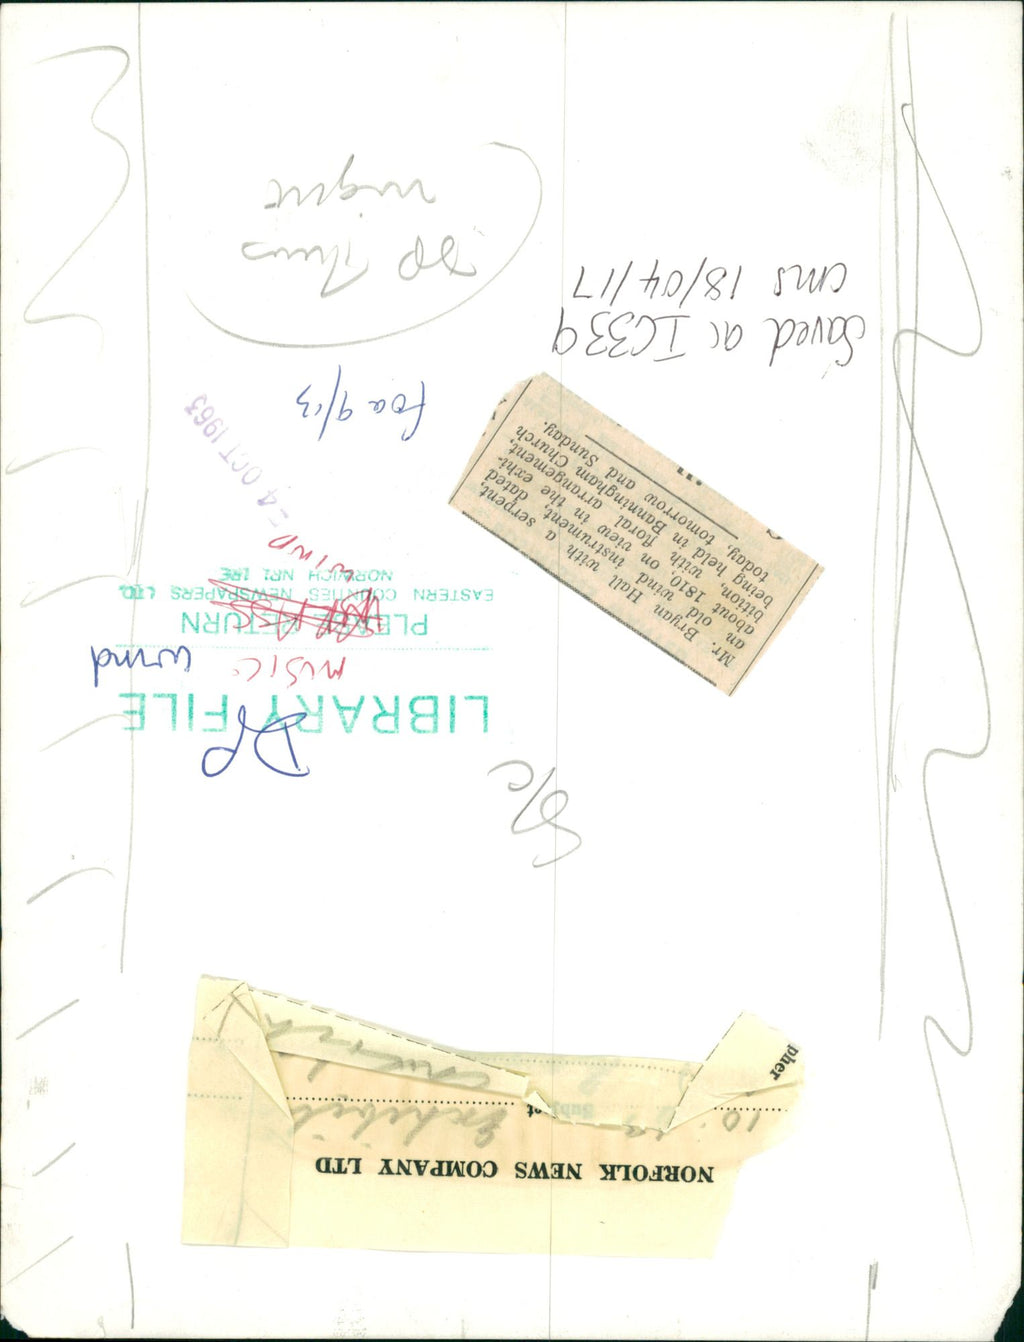 NORFOLK NEWS COMPANY LTD
10.
Subject
Exhibit
pher
S/C
DP
LIBRARY FILE
MUSIC
wind
PLEASE RETURN
EASTERN COUNTIES NEWSPAPERS LTD.
NORWICH NR1 1RE
WIND
-4 OCT 1963
Mr. Bryan Hall with a serpent,
an old wind instrument, dated
about 1810, on view in the exhi-
bition, with floral arrangement,
being held in Banningham Church
today, tomorrow and Sunday.
foe 9/13
Saved as IC339
CMS 18/04/17
DP Thurs
night